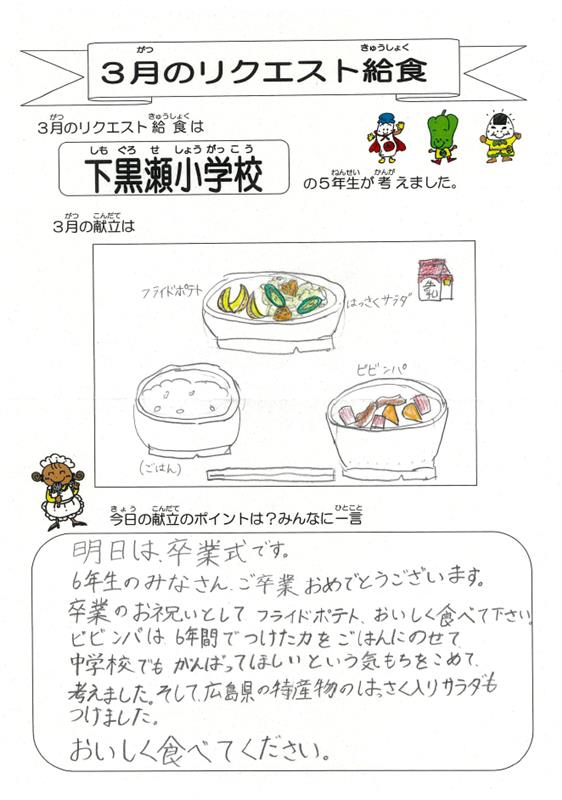 3月のリクエスト給食
がつ きゅうしょく
3月のリクエスト給食は
がつ きゅうしょく
下黒瀬小学校
しも ぐろ せ しょう がっこう
の5年生が考えました。
ねんせい かんが
3月の献立は
がつ こんだて
フライドポテト
はっさくサラダ
牛乳
ビビンパ
(ごはん)
今日の献立のポイントは?みんなに一言
きょう こんだて ひとこと
明日は、卒業式です。
6年生のみなさん、ご卒業おめでとうございます。
卒業のお祝いとして フライドポテト、おいしく食べて下さい。
ビビンパは 6年間でつけた力をごはんにのせて、
中学校でも がんばってほしいという気もちをこめて、
考えました。そして、広島県の特産物のはっさく入りサラダも
つけました。
おいしく食べてください。